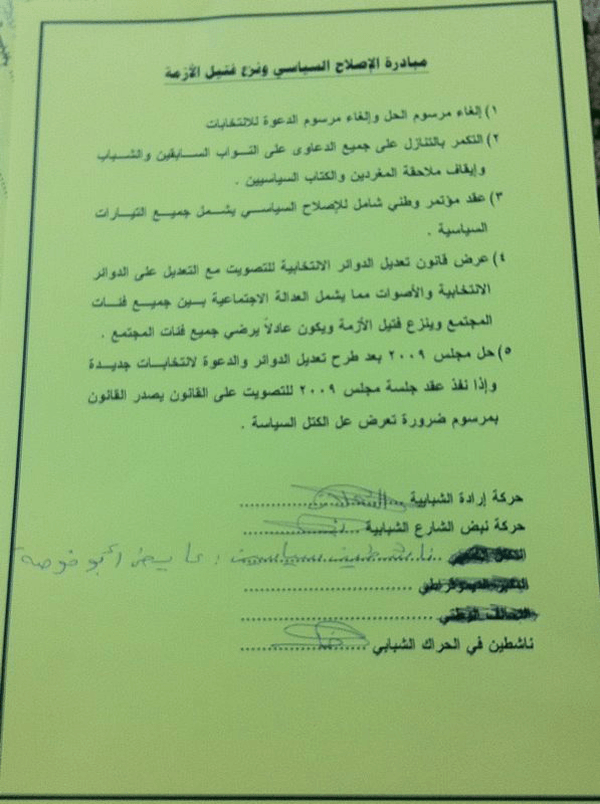 مبادرة الإصلاح السياسي ونزع فتيل الأزمة
١) إلغاء مرسوم الحل وإلغاء مرسوم الدعوة للانتخابات
٢) التكمر بالتنازل على جميع الدعاوى على النواب السابقين والشباب
وإيقاف ملاحقة المغردين والكتاب السياسيين .
٣) عقد مؤتمر وطني شامل للإصلاح السياسي يشمل جميع التيارات
السياسية .
٤) عرض قانون تعديل الدوائر الانتخابية للتصويت مع التعديل على الدوائر
الانتخابية والأصوات مما يشمل العدالة الاجتماعية بين جميع فئات
المجتمع وينزع فتيل الأزمة ويكون عادلاً يرضي جميع فئات المجتمع .
٥) حل مجلس ٢٠٠٩ بعد طرح تعديل الدوائر والدعوة لانتخابات جديدة
وإذا نفذ عقد جلسة مجلس ٢٠٠٩ للتصويت على القانون يصدر القانون
بمرسوم ضرورة تعرض عل الكتل السياسة .
حركة إرادة الشبابية
حركة نبض الشارع الشبابية
ناشطين سياسيين : عايض أبو خوصه
التحالف الوطني
ناشطين في الحراك الشبابي